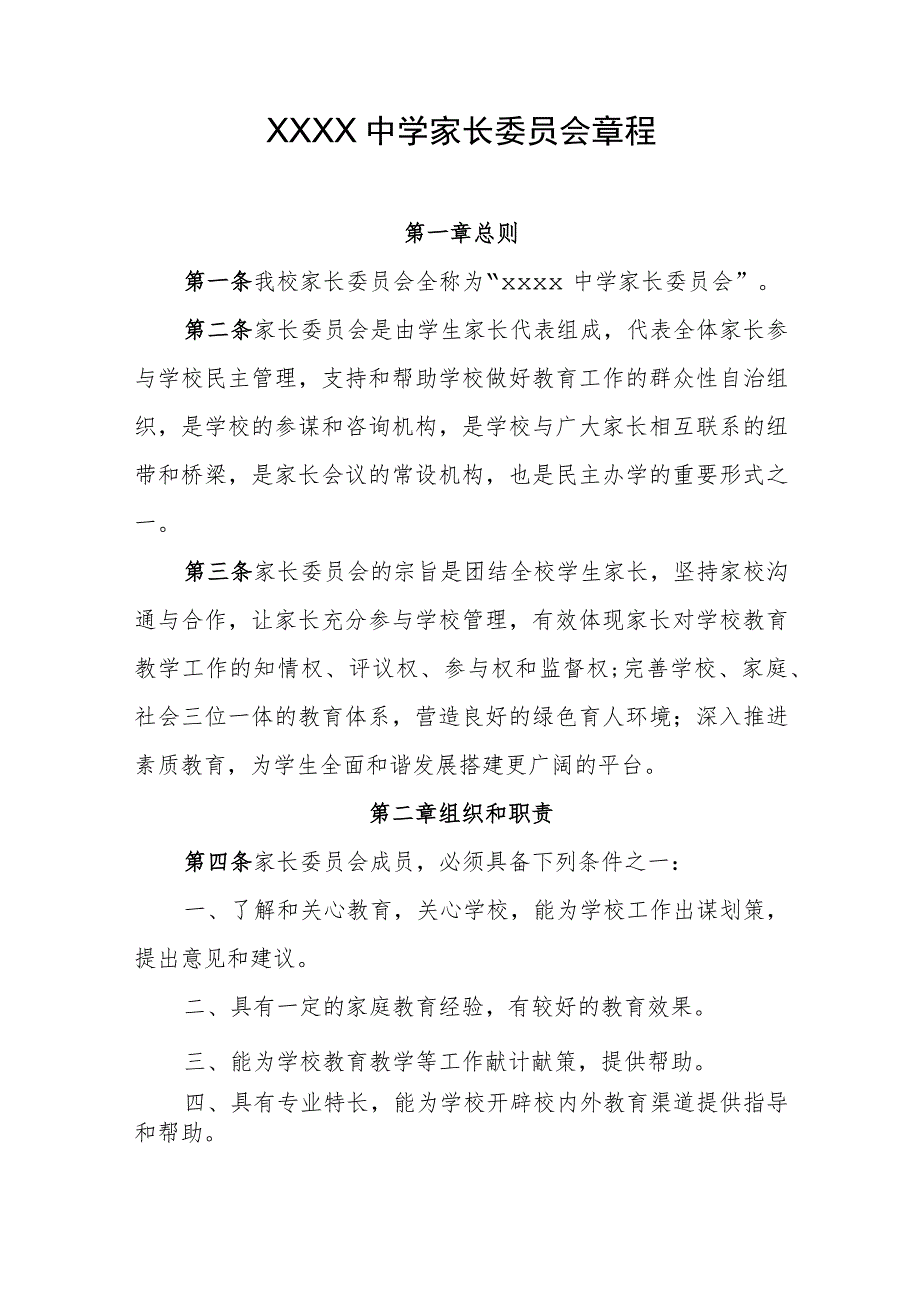 XXXX 中学家长委员会章程
第一章总则
第一条我校家长委员会全称为“xxxx 中学家长委员会”。
第二条家长委员会是由学生家长代表组成，代表全体家长参
与学校民主管理，支持和帮助学校做好教育工作的群众性自治组
织，是学校的参谋和咨询机构，是学校与广大家长相互联系的纽
带和桥梁，是家长会议的常设机构，也是民主办学的重要形式之
一。
第三条家长委员会的宗旨是团结全校学生家长，坚持家校沟
通与合作，让家长充分参与学校管理，有效体现家长对学校教育
教学工作的知情权、评议权、参与权和监督权;完善学校、家庭、
社会三位一体的教育体系，营造良好的绿色育人环境；深入推进
素质教育，为学生全面和谐发展搭建更广阔的平台。
第二章组织和职责
第四条家长委员会成员，必须具备下列条件之一：
一、了解和关心教育，关心学校，能为学校工作出谋划策，
提出意见和建议。
二、具有一定的家庭教育经验，有较好的教育效果。
三、能为学校教育教学等工作献计献策，提供帮助。
四、具有专业特长，能为学校开辟校内外教育渠道提供指导
和帮助。